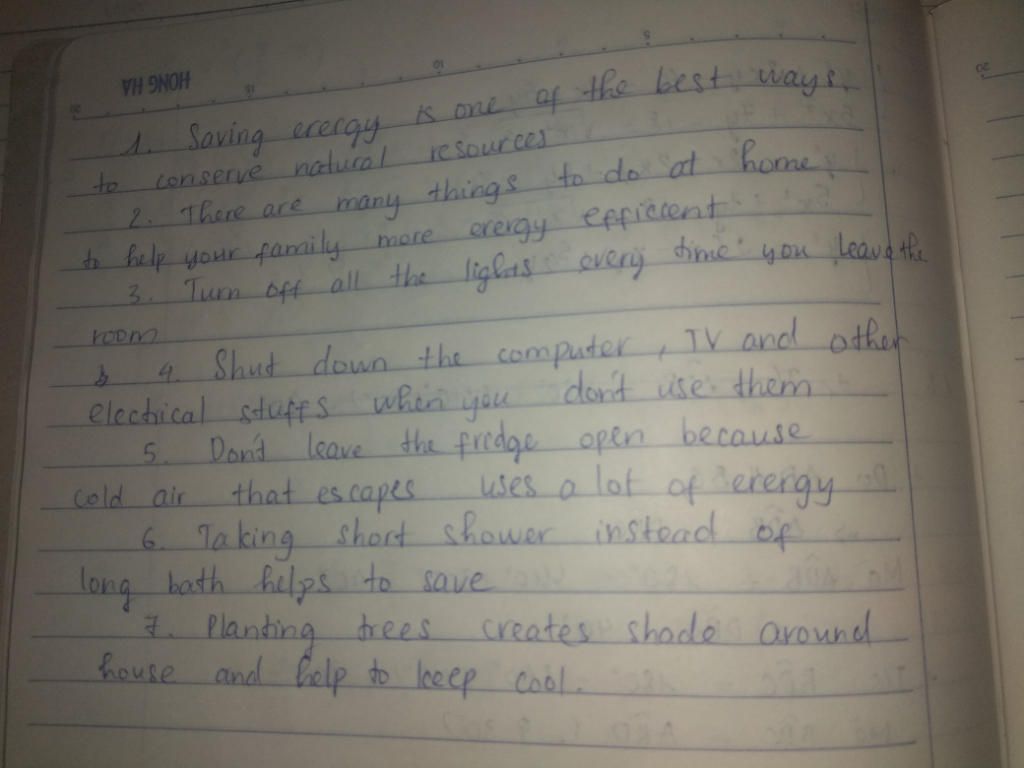 HONG HA
1. Saving erergy is one of the best ways
to conserve natural resources
2. There are many things to do at home
to help your family more erergy efficcent
3. Turn off all the lights every time you leave the
room
4. Shut down the computer, TV and other
electrical stuffs when you don't use them
5. Don't leave the fridge open because
cold air that escapes uses a lot of erergy
6. Taking short shower instead of
long bath helps to save
7. Planting trees creates shade around
house and help to keep cool.